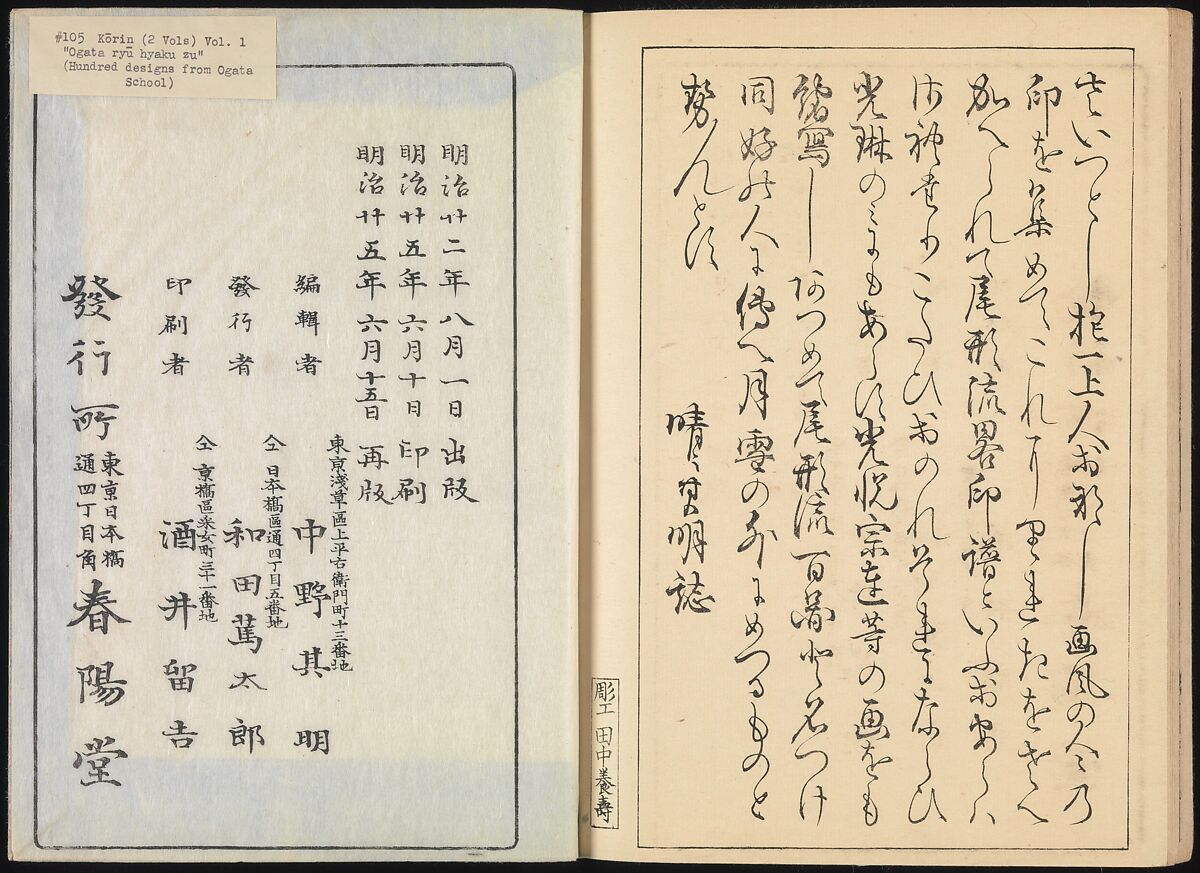 #105 Kōrin (2 Vols) Vol. 1
"Ogata ryū hyaku zu"
(Hundred designs from Ogata
School)
さいつとし抱一上人 画風の人々乃
印を集めてこれ
加へられて尾形流畧印譜といふ
こたひおのれ ならひ
光琳のミにもあらす光悦宗達等の画をも
縮寫しあつめて尾形流百圖と名つけ
同好の人に傳へ月雪の外にめつるものと
勢んとす
晴々其明誌
彫工 田中養壽
明治廿二年八月一日出版
明治廿五年六月十日印刷
明治廿五年六月十五日再版
東京淺草區上平右衛門町十三番地
編輯者 中野其明
仝 日本橋區通四丁目五番地
發行者 和田篤太郎
仝 京橋區采女町三十一番地
印刷者 酒井留吉
東京日本橋
通四丁目角
發行所 春陽堂